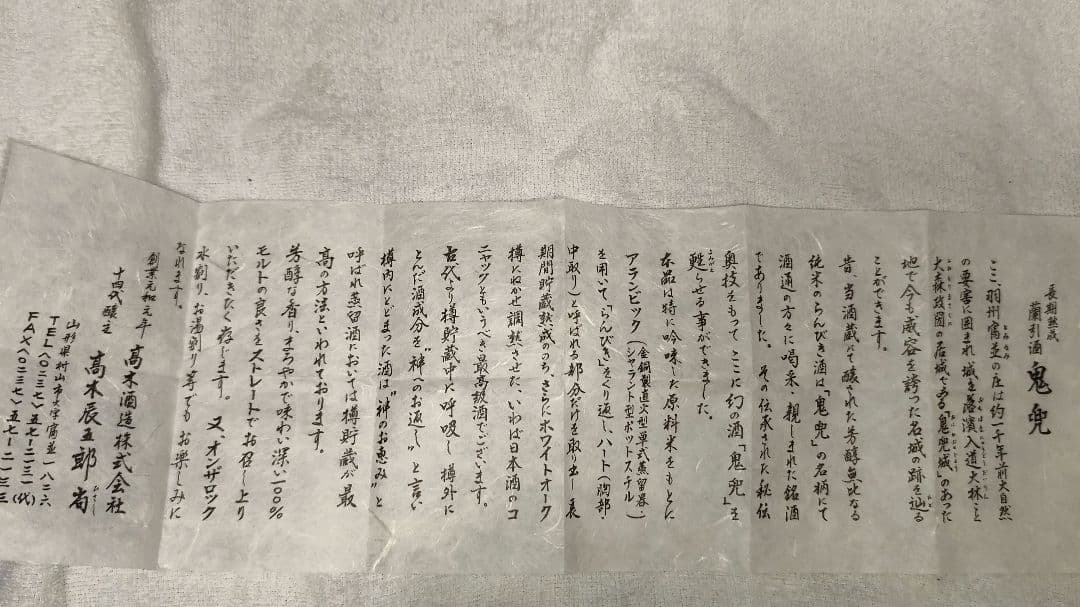 長期熟成
蘭引酒 鬼兜
ここ、羽州富並の庄は約一千年前大自然
の要害に囲まれ城を落濱入道大林こと
大森政國の居城である「鬼兜城」のあった
地で今も威容を誇った名城の跡を辿る
ことができます。
昔、当酒蔵にて醸された芳醇無比なる
純米のらんびき酒は「鬼兜」の名柄にて
酒通の方々に喝采・親しまれた銘酒
でありました。その伝承された秘伝
奥技をもって ここに幻の酒「鬼兜」を
甦らせる事ができました。
本品は特に吟味した原料米をもとに
アランビック(全銅製直火型単式蒸留器)(シャラント型ポットスチル)
を用いて、らんびきをくり返し、ハート(胸部・
中取り)と呼ばれる部分だけを取り出し長
期間貯蔵熟成ののち、さらにホワイトオーク
樽にねかせ調熟させた、いわば日本酒のコ
ニャックともいうべき最高級酒でございます。
古代より樽貯蔵中に呼吸し 樽外に
とんだ酒成分を"神へのお返し"と言い
樽内にとどまった酒は"神のお恵み"と
呼ばれ蒸留酒においては樽貯蔵が最
高の方法といわれております。
芳醇な香り、まろやかで味わい深い一〇〇%
モルトの良さをストレートでお召し上り
いただきたく存じます。又、オンザロック
水割り、お湯割り等でも お楽しみに
なれます。
創業元和元年 高木酒造株式会社
十四代醸主 高木辰五郎
山形県村山市大字富並一八二六
TEL〇二三七・五七・二一三一(代)
FAX〇二三七・五七・二一三三